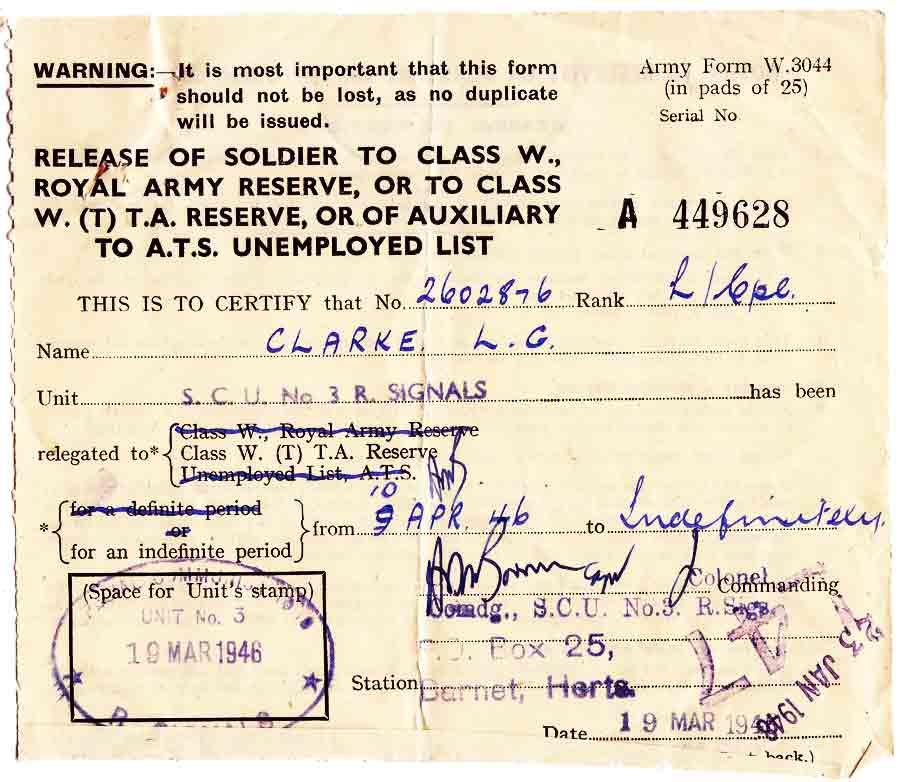 WARNING:—It is most important that this form
should not be lost, as no duplicate
will be issued.
Army Form W.3044
(in pads of 25)
Serial No
RELEASE OF SOLDIER TO CLASS W.,
ROYAL ARMY RESERVE, OR TO CLASS
W. (T) T.A. RESERVE, OR OF AUXILIARY
TO A.T.S. UNEMPLOYED LIST
A 449628
THIS IS TO CERTIFY that No. 2602876 Rank L/Cpl.
Name CLARKE. L.G.
Unit S. C. U. No 3 R. SIGNALS has been
relegated to*
Class W., Royal Army Reserve
Class W. (T) T.A. Reserve
Unemployed List, A.T.S.
* for a definite period
or
for an indefinite period
from 10 APR. 46 to Indefinitely.
(Space for Unit's stamp)
UNIT No. 3
19 MAR 1946
Colonel Commanding
Comdg., S.C.U. No.3. R.Sigs.
P.O. Box 25,
Station Barnet, Herts.
Date 19 MAR 1946
23 JAN 1948
back.)